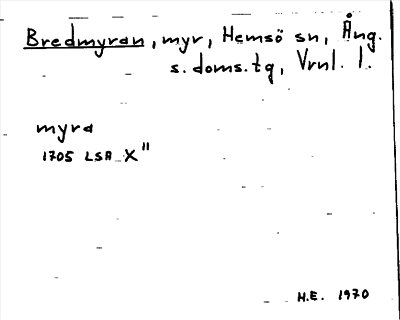 Bredmyran, myr, Hemsö sn, Ång.
s. doms. tg, Vrnl. l.
myra
1705 LSA X"
H.E. 1970